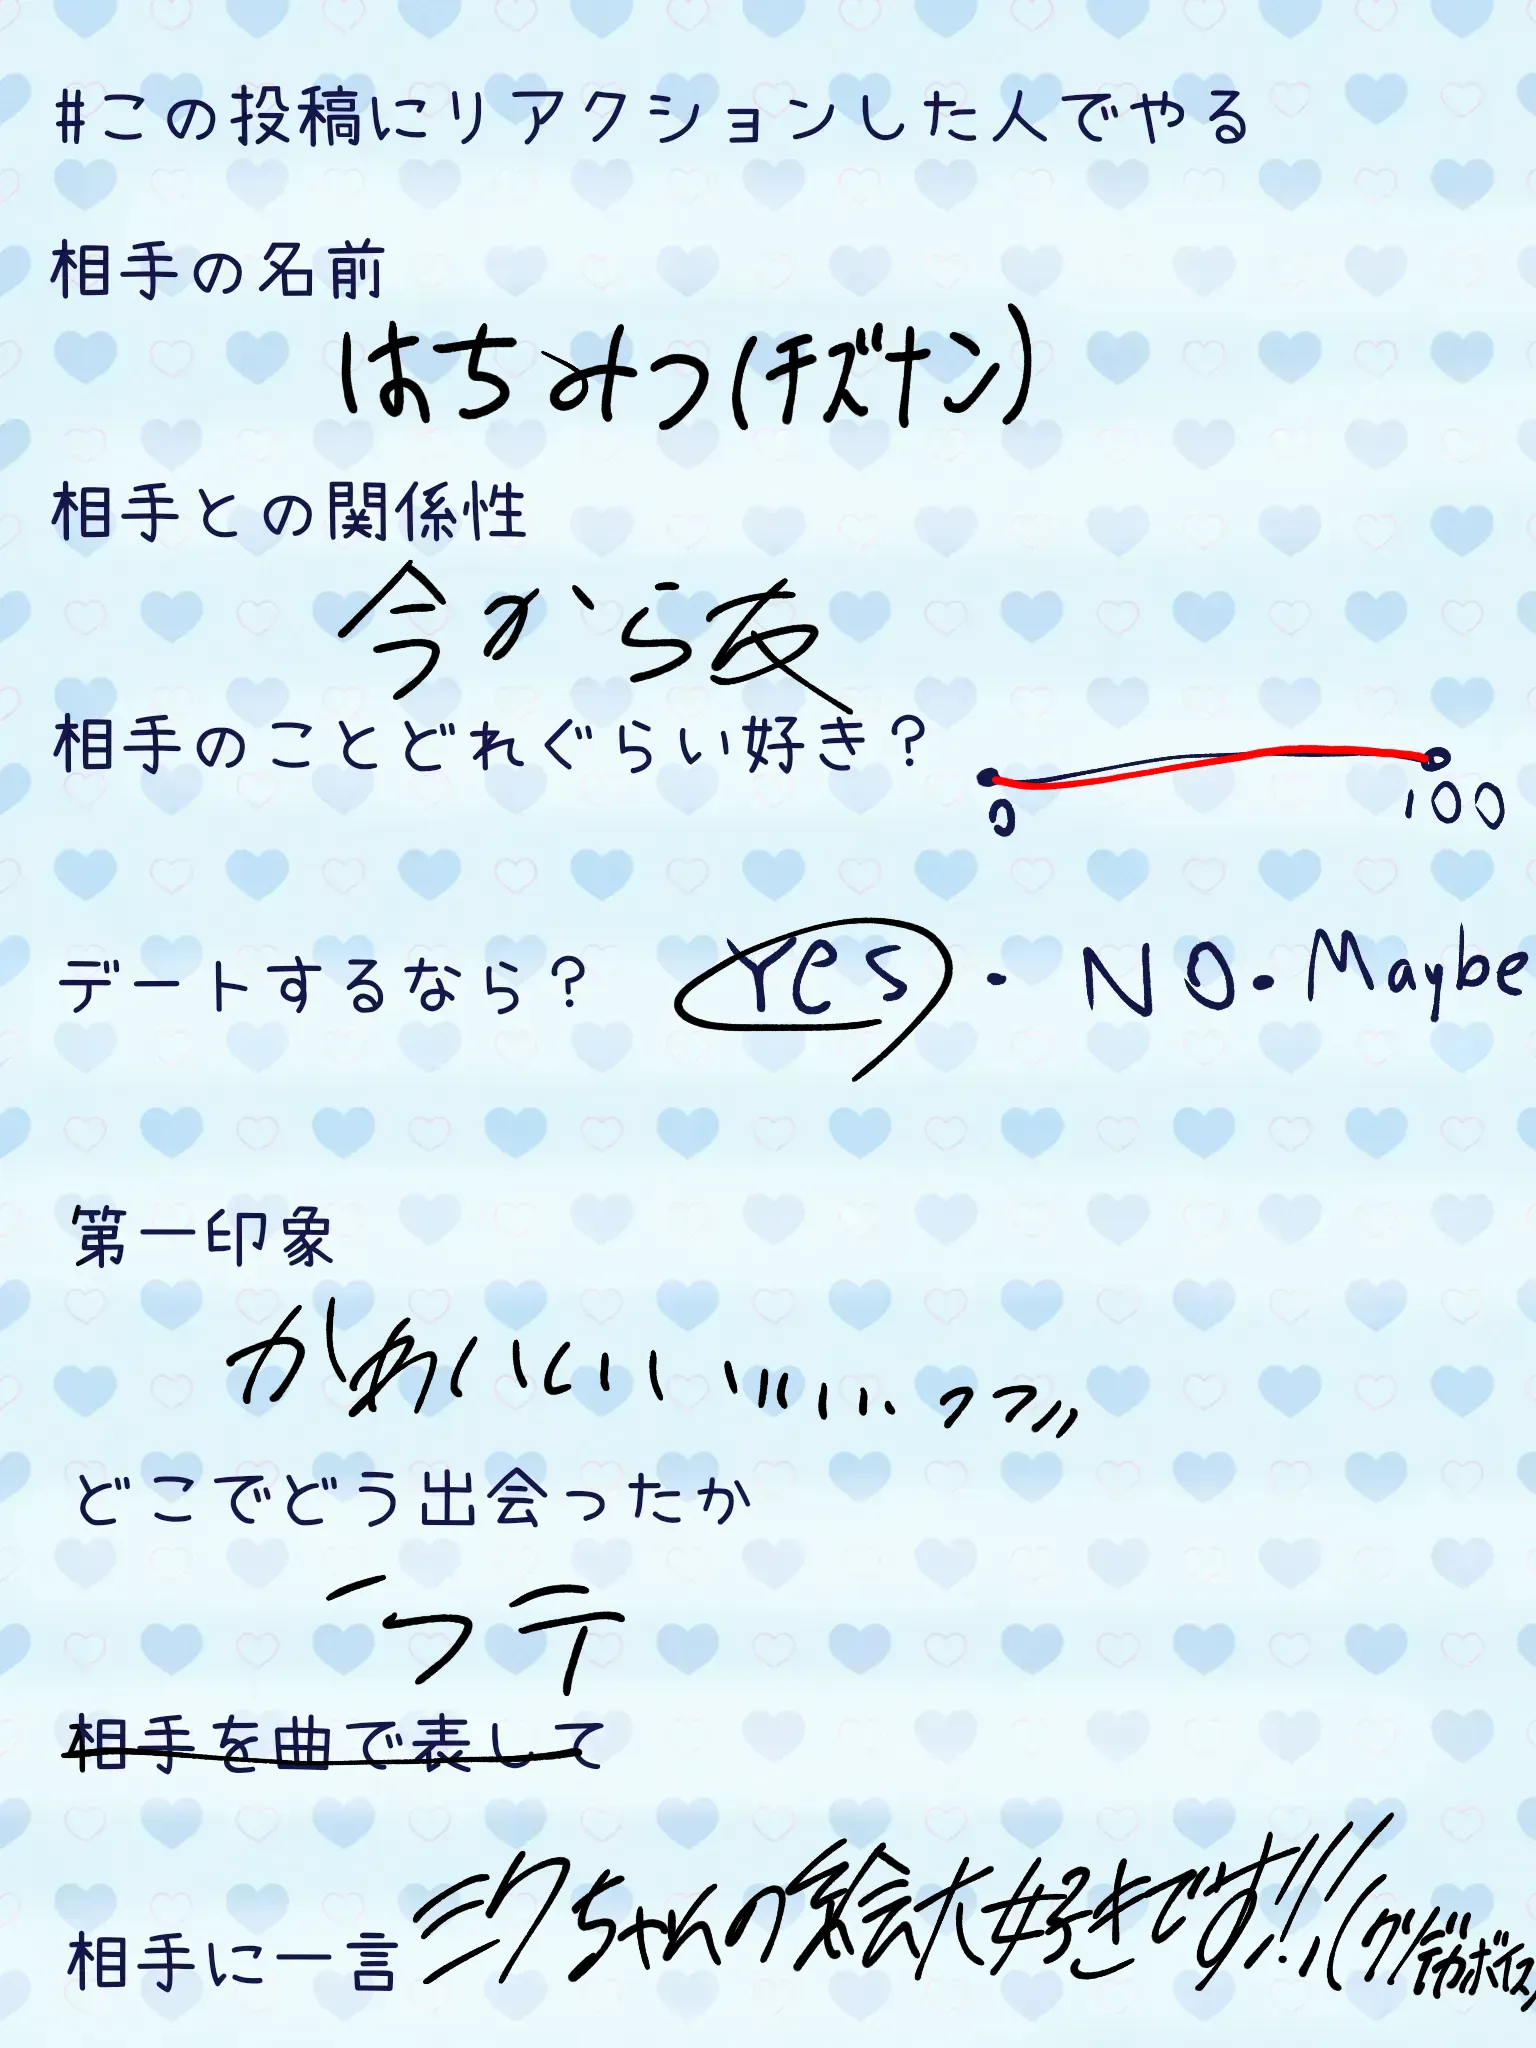 #この投稿にリアクションした人でやる
相手の名前
はちみつ(チズナン)
相手との関係性
今から友
相手のことどれぐらい好き?
0 100
デートするなら? Yes・NO・Maybe
第一印象
かわいいいいいいいいい、、、ッッ〃
どこでどう出会ったか
プラテ
相手を曲で表して
相手に一言 ミクちゃんの絵大好きです!!!(クソデカボイス)